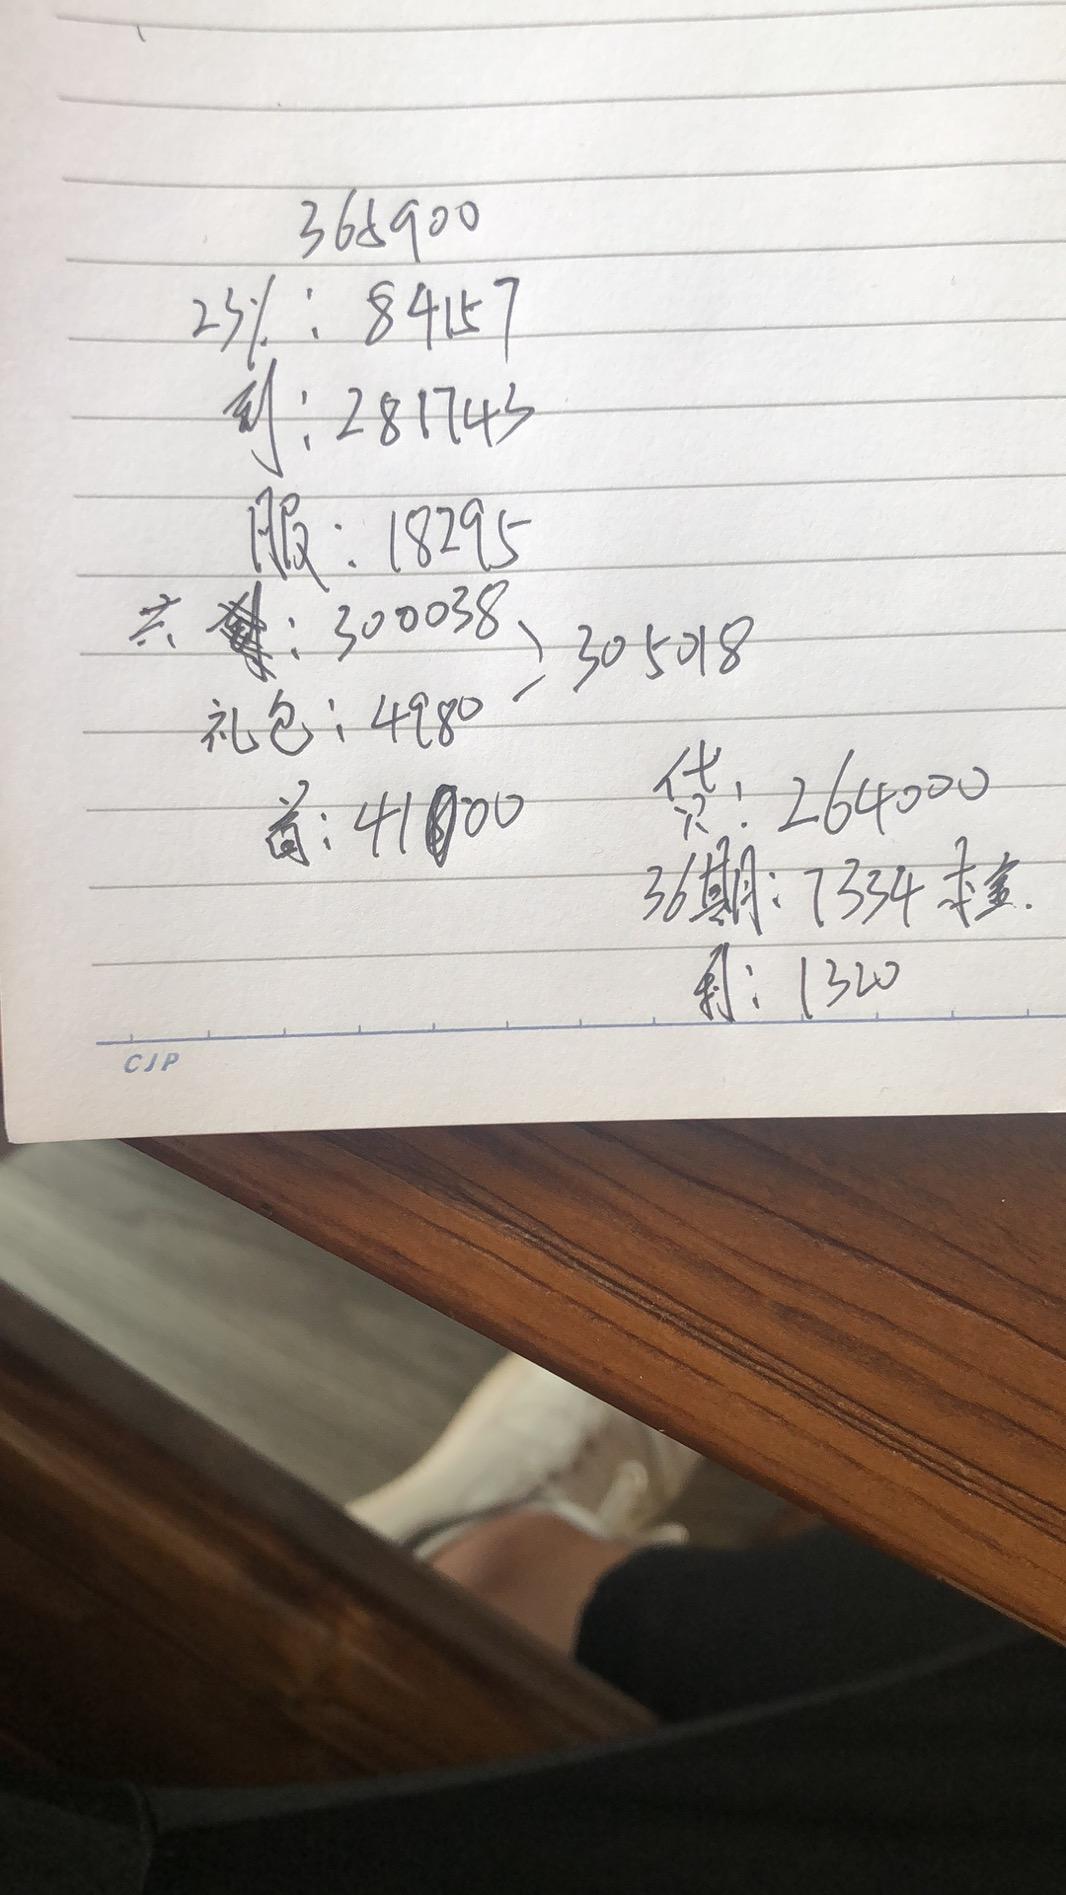 365900
23%: 84157
到: 281743
服: 18295
共 : 300038
305018
礼包: 4980
首: 41000
贷: 264000
36期: 7334 本金.
利: 1320
CJP